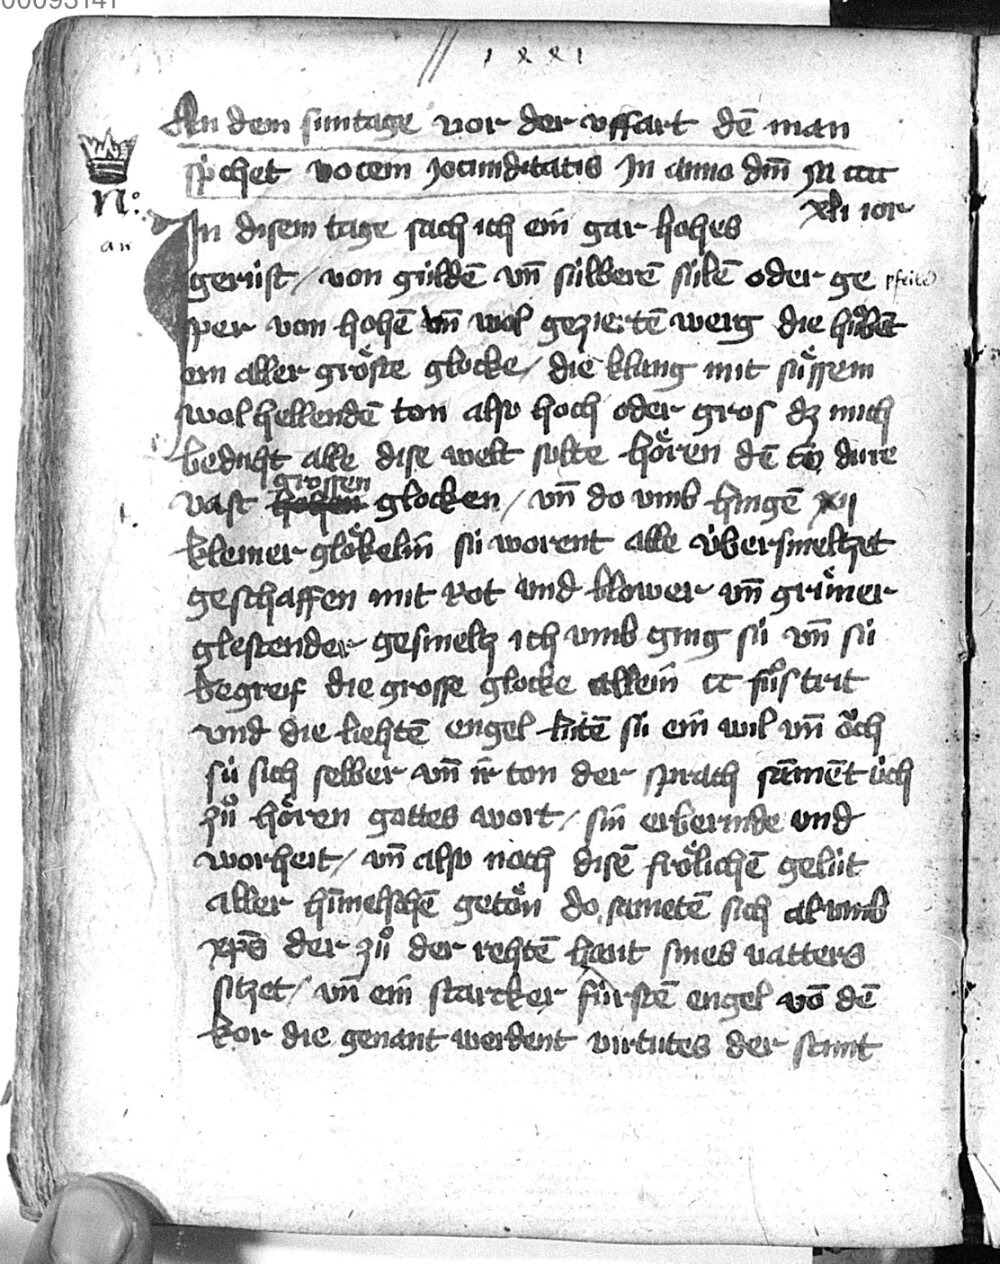 00093141
// lxxi
An dem suntage vor der uffart dē man
spͥchet vocem Jocunditatis In anno dn̄i M ccc
xlii ior
n:
an
In disem tage sach ich ein gar hohes
gerúst / von gúldē vn̄ silberē súlē oder ge pfeile
sper von hohē vn̄ wol geziertē werg die húbēt
ein aller groͤste glocke / die klang mit suͤssem
wol hellendē ton also hoch oder gros dz mich
beduht alle dise welt solte hoͤren dē tō dure
vast grossen glocken / vn̄ do vmb hingē xii
kleiner gloͤkelin sú worent alle úbersmeltzet
geschaffen mit Rot vnd blower vn̄ gruͤner
glestender gesmeltz ich vmb ging sú vn̄ sú
begreif die grosse glocke allein cc fuͦstrit
vnd die liehtē engel lútē sú ein wil vn̄ oͮch
sú sich selber vn̄ ir ton der sprach samēt úch
zuͦ hoͤren gottes wort / sin erbermde vnd
worheit / vn̄ also noch disē froͤlichē gelút
aller himelschē getoͤn do sametē sich al vmb
xp̄s der zuͦ der rehtē hant sines vatters
sitzet / vn̄ ein starcker fúrstē engel vō dē
kor die genant werdent virtutes der stunt